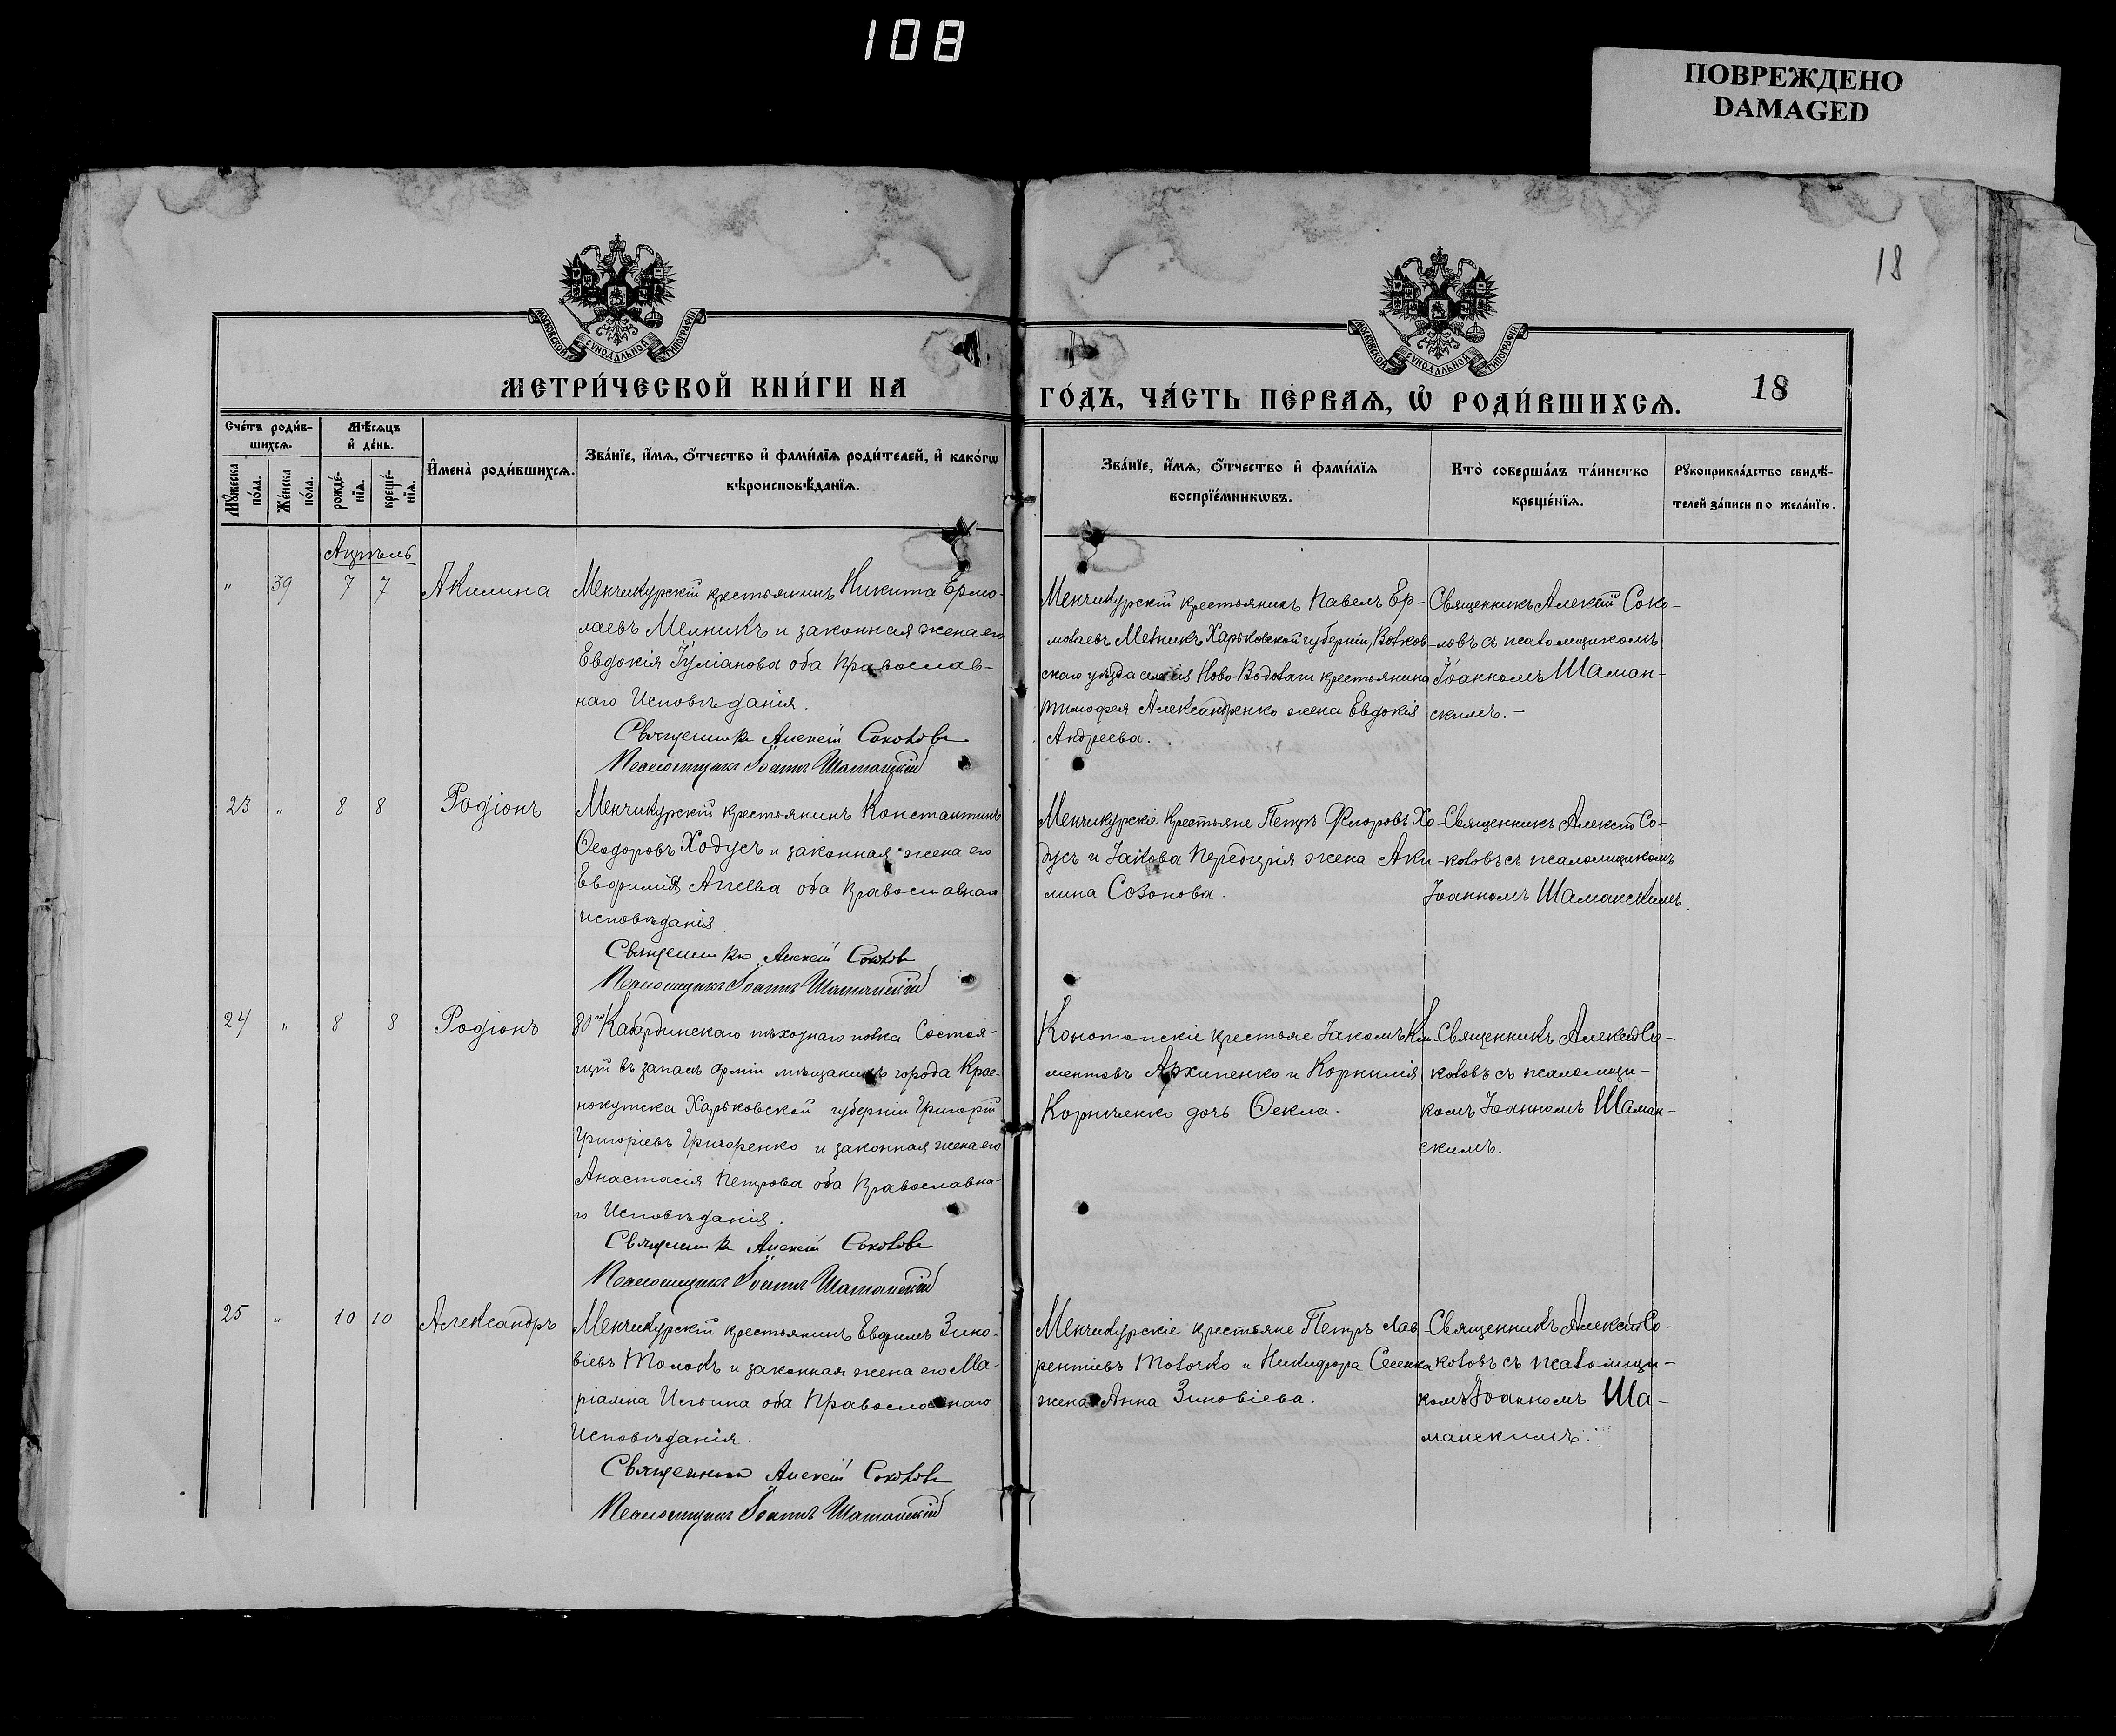 108
ПОВРЕЖДЕНО
DAMAGED
18
МОСКОВСКОЙ СУНОДАЛЬНОЙ ТИПОГРАФІИ
МОСКОВСКОЙ СУНОДАЛЬНОЙ ТИПОГРАФІИ
МЕТРИ́ЧЕСКОЙ КНИ́ГИ НА
ГО́ДЪ, ЧА́СТЬ ПЕ́РВАѦ, Ѡ҆ РОДИ́ВШИХСѦ.
18
Сче́тъ роди́в-
шихсѧ.
Мꙋ́жеска
по́ла.
Же́нска
по́ла.
Мѣ́сѧцъ
и҆ де́нь.
рожде́-
нїѧ.
креще́-
нїѧ.
И҆мена̀ роди́вшихсѧ.
Зва́нїе, и҆́мѧ, ѻ҆́тчество и҆ фами́лїѧ роди́телей, и҆ како́гѡ
вѣроисповѣ́данїѧ.
Зва́нїе, и҆́мѧ, ѻ҆́тчество и҆ фами́лїѧ
воспрїе́мникѡвъ.
Кто̀ соверша́лъ та́инство
креще́нїѧ.
Рꙋкоприкла́дство свидѣ́-
телей за́писи по жела́нїю.
Апрѣль
" 39 7 7 Акилина
Менчикурскій крестьянинъ Никита Ермо-
лаевъ Мелникъ и законная жена его
Евдокія Іуліанова оба православ-
наго Исповѣданія.
Священникъ Алексій Соколовъ
Псаломщикъ Іоаннъ Шаманскій
Менчикурскій крестьянинъ Павелъ Ер-
молаевъ Мелникъ Харьковской губерніи, Волков-
скаго уѣзда селенія Ново-Водолаги крестьянина
Тимофея Александренко жена Евдокія
Андреева.
Священникъ Алексій Соко-
ловъ съ псаломщикомъ
Іоанномъ Шаман-
скимъ.-
23 " 8 8 Родіонъ
Менчикурскій крестьянинъ Константинъ
Ѳеодоровъ Ходусъ и законная жена его
Евфимія оба православнаго
исповѣданія
Священникъ Алексій Соколовъ
Псаломщикъ Іоаннъ Шаманскій
Менчикурскіе крестьяне Петръ Ѳеодоровъ Хо-
дусъ и Іакова Передерія жена Аки-
лина Созонова.
Священникъ Алексій Со-
коловъ съ псаломщикомъ
Іоанномъ Шаманскимъ.
24 " 8 8 Родіонъ
80го Кабардинскаго пѣхотнаго полка Состоя-
щій въ запасѣ арміи мѣщанинъ города Крас-
нокутска Харьковской губерніи Григорій
Григоріевъ Григоренко и законная жена его
Анастасія Петрова оба православна-
го Исповѣданія.
Священникъ Алексій Соколовъ
Псаломщикъ Іоаннъ Шаманскій
Конотопскіе крестьяне Іаковъ Кли-
ментовъ Архипенко и Корнилія
Корніенко дочь Ѳекла.
Священникъ Алексій Со-
коловъ съ псаломщи-
комъ Іоанномъ Шаман-
скимъ.
25 " 10 10 Александръ
Менчикурскій крестьянинъ Евфимъ Зино-
віевъ Толокъ и законная жена его Ма-
ріамна Ильина оба Православнаго
Исповѣданія.
Священникъ Алексій Соколовъ
Псаломщикъ Іоаннъ Шаманскій
Менчикурскіе крестьяне Петръ Лав-
рентіевъ Толочко и Никифора Сененка
жена Анна Зиновіева.
Священникъ Алексій Со-
коловъ съ псаломщи-
комъ Іоанномъ Ша-
манскимъ.